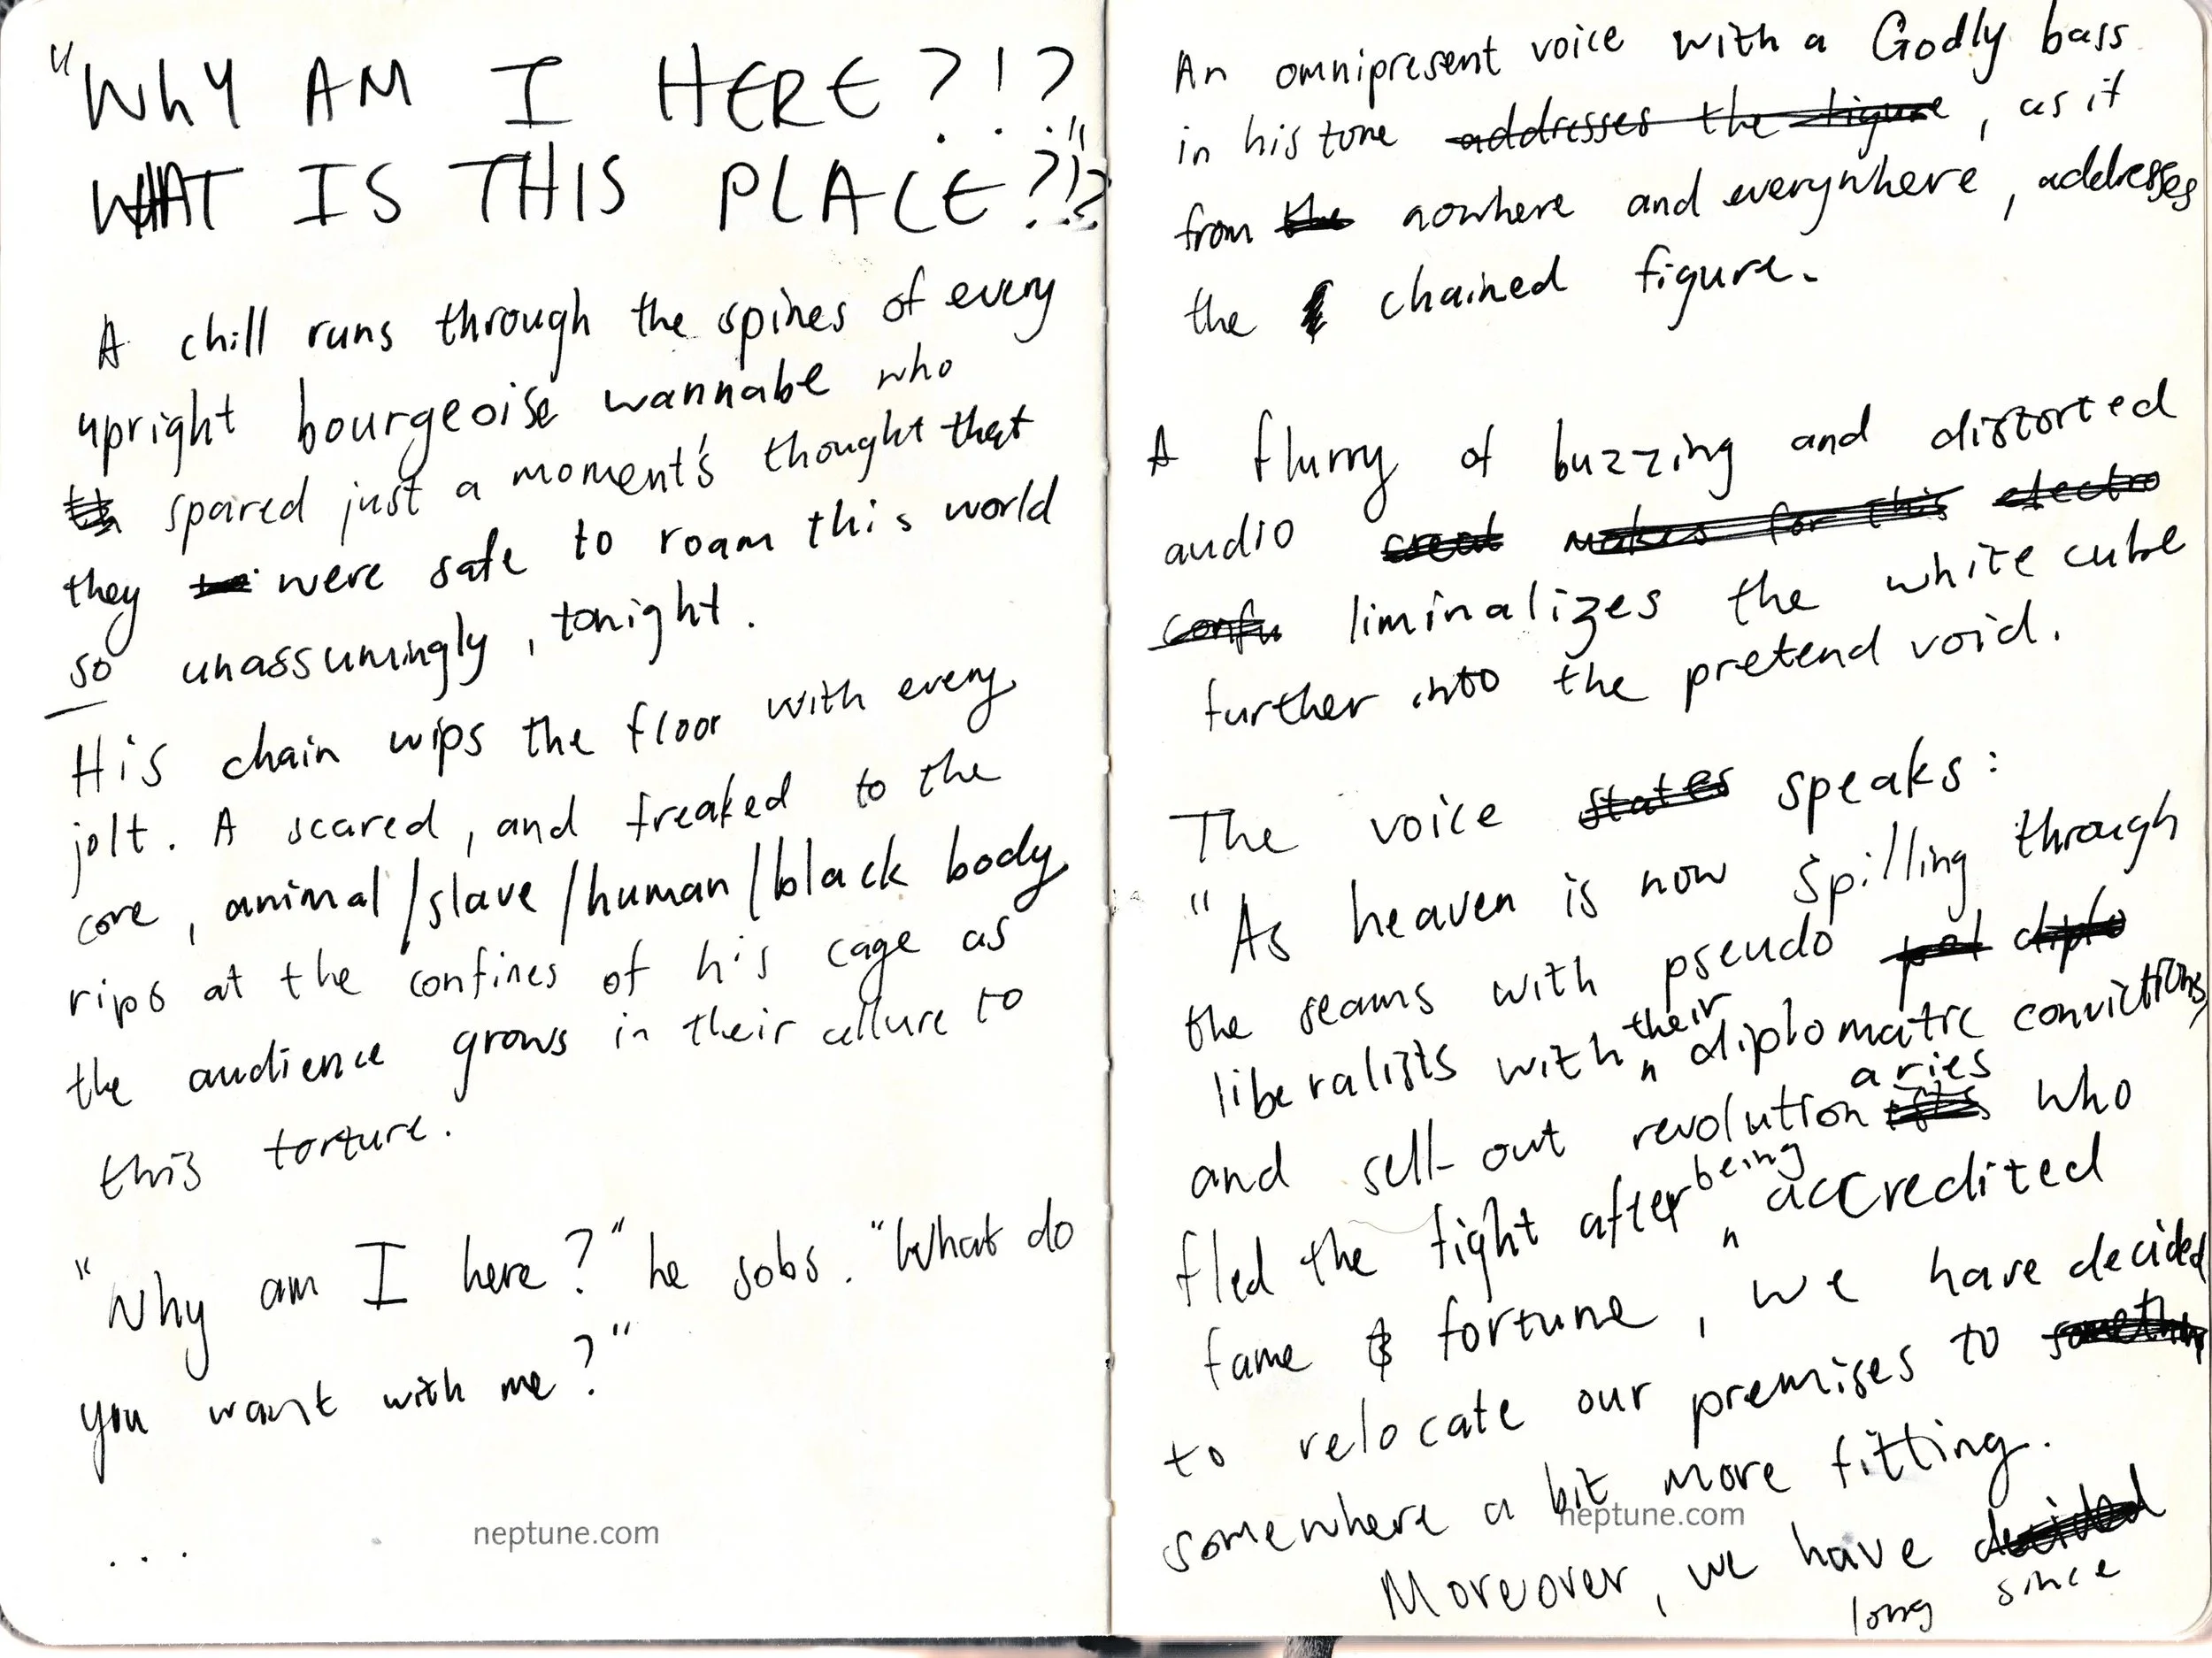 "WhY AM I HERE?!?
WHAT IS THIS PLACE?!?"
A chill runs through the spines of every
upright bourgeoise wannabe who
spared just a moment's thought that
they were safe to roam this world
so unassumingly, tonight.
His chain wips the floor with every
jolt. A scared, and freaked to the
core, animal/slave/human/black body
rips at the confines of his cage as
the audience grows in their allure to
this torture.
"Why am I here?" he sobs. "What do
you want with me?"
...
neptune.com
An omnipresent voice with a Godly bass
in his tone ~~addresses the figure~~, as if
from ~~the~~ nowhere and everywhere, addresses
the chained figure.
A flurry of buzzing and distorted
audio ~~creat~~ ~~makes for this~~ ~~electro~~
~~confu~~ liminalizes the white cube
further into the pretend void.
The voice ~~states~~ speaks:
"As heaven is now spilling through
the seams with pseudo ~~pol~~ ~~diplo~~
liberalists with their diplomatic convictions,
and sell-out revolutionaries who
fled the fight after being accredited
fame & fortune, we have decided
to relocate our premises to ~~somethin~~
somewhere a bit more fitting.
neptune.com
Moreover, we have ~~decided~~
long since